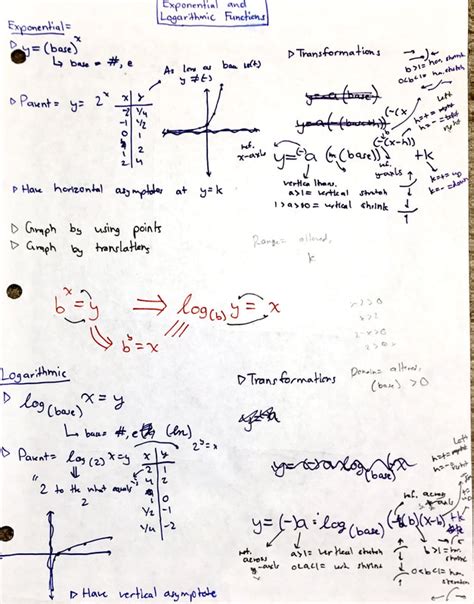 Exponential and
Logarithmic Functions
Exponential =
▷ y = (base)^x
↳ base = #, e
As long as base is(+)
y ≠ (-)
▷ Parent = y = 2^x
x y
-2 1/4
-1 1/2
0 1
1 2
2 4
▷ Have horizontal asymptotes at y=k
▷ Graph by using points
▷ Graph by translations
▷ Transformations
b>1 = horz. shrink
0<b<1 = hz. stretch
Left
h = + = left
h = - = right
ref.
x-axis
y = (-)a (base)^((-)(x-h)) + k
ref.
y-axis
k = + = up
k = - = down
vertical trans.
a>1 = vertical stretch
1>a>0 = vertical shrink
Range = altered,
k
b^x = y ⟹ log(b) y = x
b^y = x
x>2
Logarithmic
▷ log(base) x = y
↳ base = #, e (ln)
2^y = x
▷ Parent = log(2) x = y
"2 to the what equals"
x y
2 1
4 2
1 0
1/2 -1
1/4 -2
▷ Have vertical asymptote
▷ Transformations
Domain = altered,
(base) > 0
y = (-)a log(base) (x
ref. across
y-axis
Left
y = (-)a · log(base) (-(b)(x-h)) + k
ref.
across
x-axis
a>1 = vertical stretch
0<a<1 = vert. shrink
b>1 =
shrink
0<b<1 =